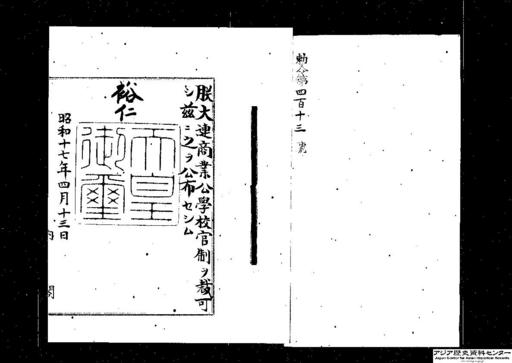 勅令第四百十三号
朕大連商業公學校官制ヲ裁可
シ茲ニ之ヲ公布セシム
裕仁
天皇
御璽
昭和十七年四月十三日
内閣
アジア歴史資料センター
Japan Center for Asian Historical Records